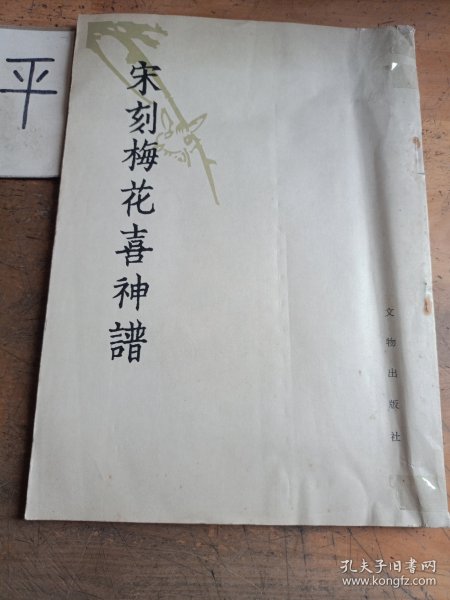 平
宋刻梅花喜神譜
文物出版社
孔夫子旧书网
www.kongfz.com